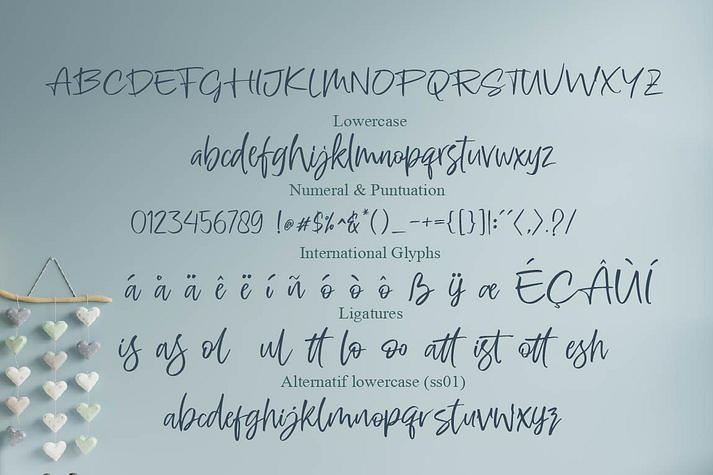 ABCDEFGHIJKLMNOPQRSTUVWXYZ
Lowercase
abcdefghijklmnopqrstuvwxyz
Numeral & Puntuation
0123456789 !@#$%^&*()_-+={[}]|:´´<,>.?/
International Glyphs
á å ä ê ë í ñ ó ò ô ß ÿ æ ÉÇÂÙÍ
Ligatures
is as ol ul tt lo oo att ist ott esh
Alternatif lowercase (ss01)
abcdefghijklmnopqrstuvwxyz